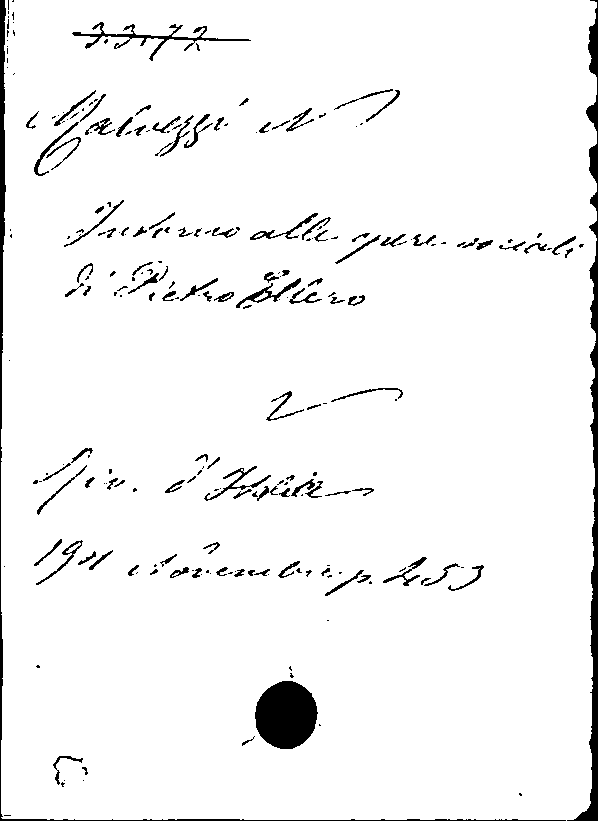 3.3.72
Malvezzi N
Intorno alle opere sociali
di Pietro Ellero
Riv. d'Italia
1911 Novembre p. 453